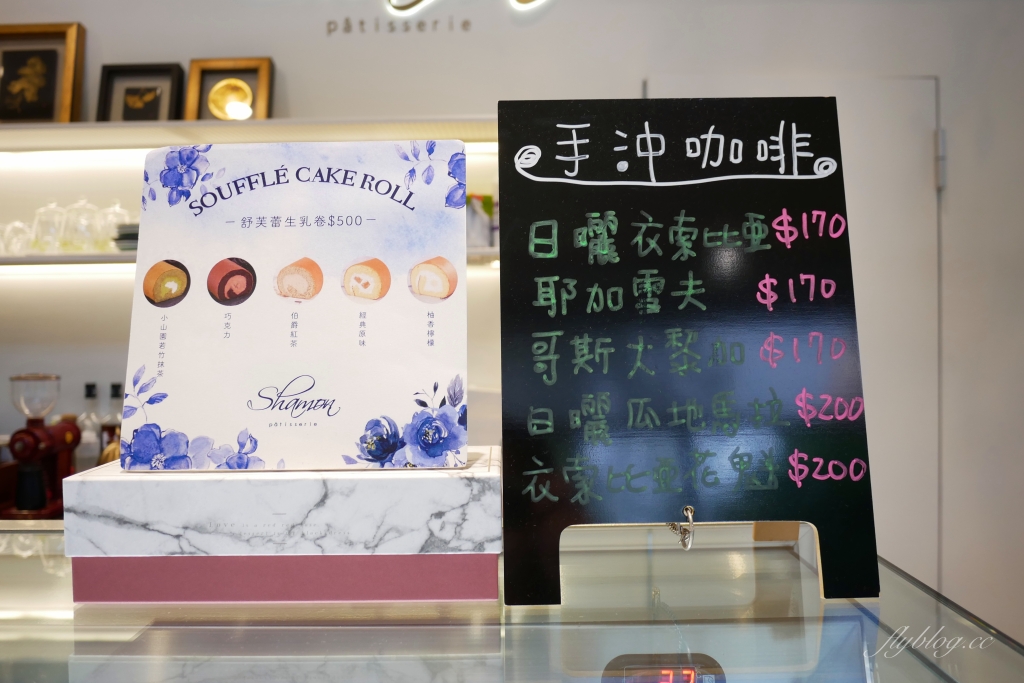 pâtisserie
SOUFFLÉ CAKE ROLL
舒芙蕾生乳卷$500
小山園若竹抹茶
巧克力
伯爵紅茶
經典原味
柚香檸檬
Shamon
pâtisserie
手沖咖啡
日曬衣索比亞 $170
耶加雪夫 $170
哥斯大黎加 $170
日曬瓜地馬拉 $200
衣索比亞花魁 $200
flyblog.cc